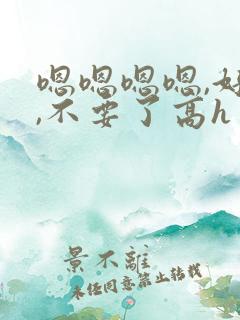 嗯嗯嗯嗯,好
,不要了高h
景不離
未任同意禁止转载